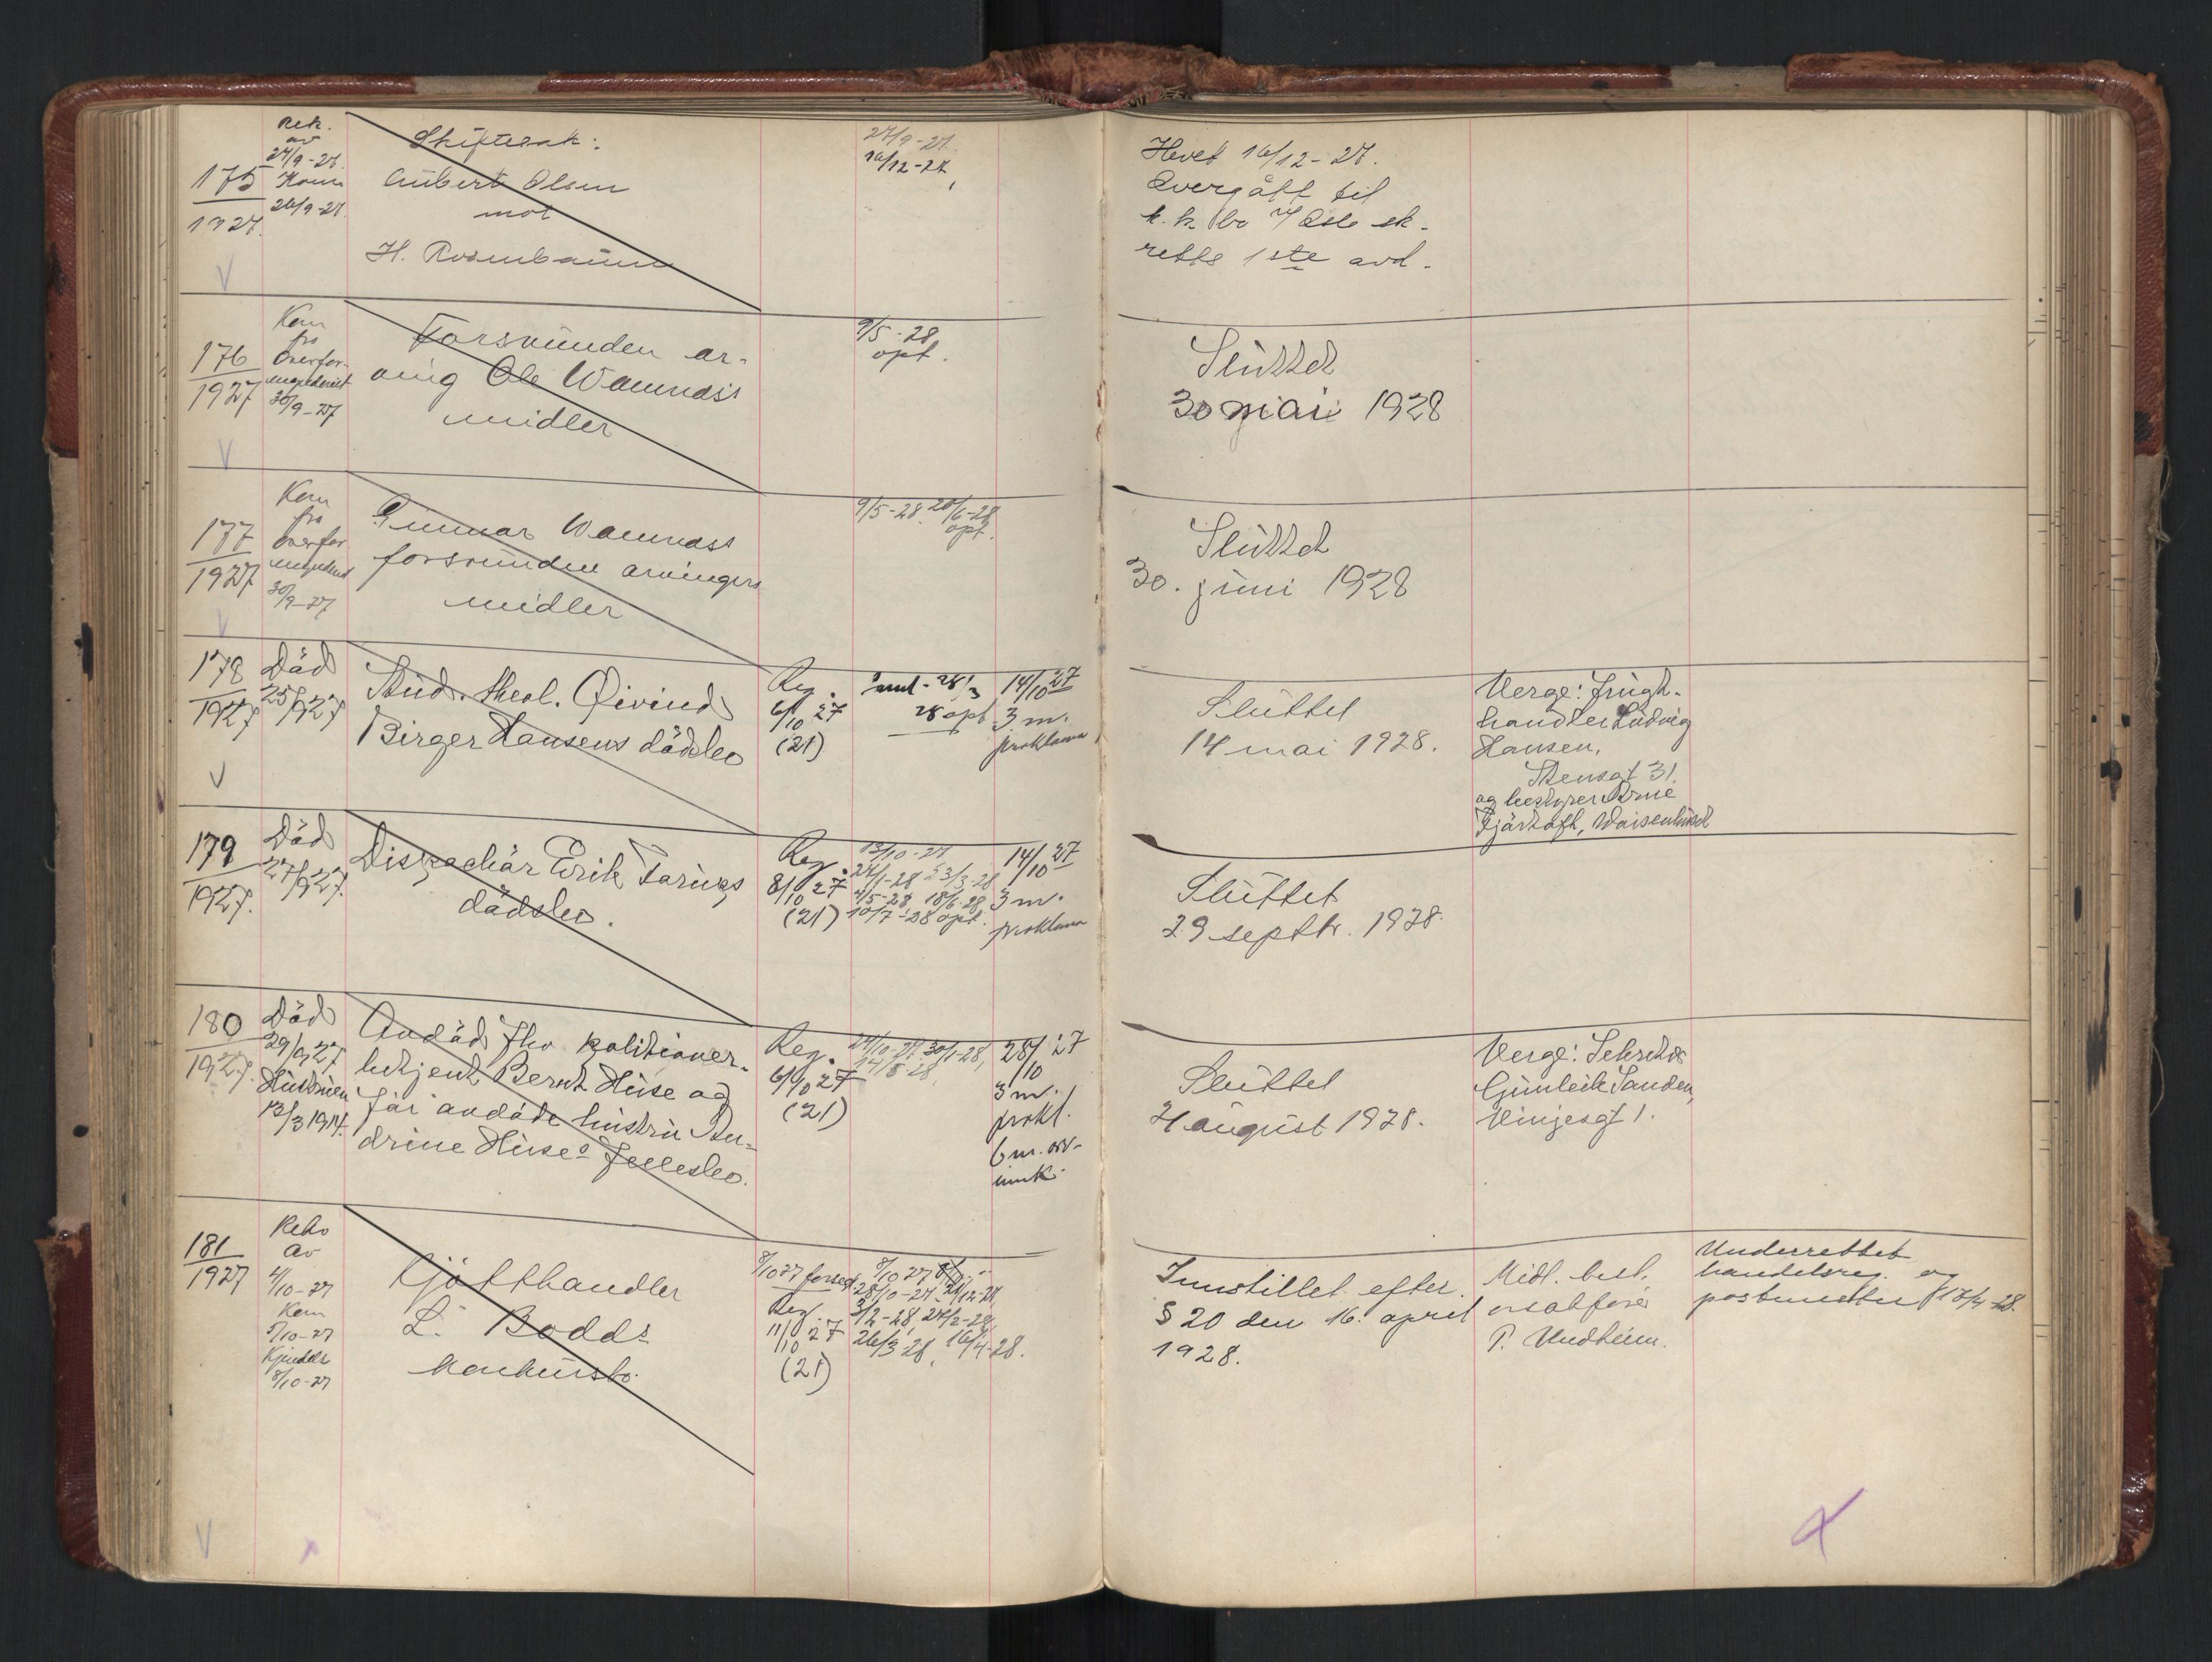 175
1927.
Rek.
av
24/9-27.
Kom
26/9-27.
Skiftesak:
Aubert Olsen
mot
H. Rosenbaum
27/9-27.
16/12-27.
Hevet 16/12-27.
Overgått til
k. k. bo v/ Oslo sk.
retts 1ste avd.
176
1927
Kom
fra
Overfor-
30/9-27
Forsvunden ar-
ving Ole Wamnæss
midler
9/5-28
opt.
Sluttet
30 mai 1928
177
1927
Kom
fra
Overfor
30/9-27
Gunnar Wamnæss
forsvunden arvingers
midler
9/5-28. 20/6-28
opt.
Sluttet
30. juni 1928
178
1927
Död
25/9 27
Stud. theol. Öivind
Birger Hansens dödsbo
Reg.
6/10 27
(21)
Saml - 28/3
28 opt.
14/10 27
3 m.
proklama
Sluttet
14 mai 1928.
Verge: Frugt-
handler Ludvig
Hansen,
Stensgt 31.
og bestyrer Arne
Fjørtoft, Waisenhuset
179
1927.
Död
27/9 27.
Dispachör Erik Tarups
dödsbo.
Reg.
8/10 27
(21)
13/10-27
24/1-28 23/3-28
4/5-28 18/6-28
10/7-28 opt.
14/10 27
3 m.
proklama
Sluttet
29 septbr. 1928.
180
1927.
Död
29/9 27.
Hustruen
13/3 1914.
Avdöd fhv. politiover-
betjent Bernt Huse og
før avdöde hustru An-
drine Huses fellesbo.
Reg.
6/10 27
(21)
27/10-27, 30/1-28,
14/5-28,
28/10 27
3 m.
prokl.
6 m. arv-
innk.
Sluttet
4 august 1928.
Verge: Sekretær
Gunleik Sanden,
Vinjesgt 1.
181
1927
Rekv
av
4/10-27
Kom
5/10-27
Kjendels
8/10-27
Kjötthandler
L. Bodds
konkursbo.
8/10 27 forsegl.
Reg.
11/10 27
(21)
8/10 27
28/10-27, 21/12-27,
3/2-28, 24/2-28,
26/3-28, 16/4-28.
Innstillet efter
§ 20 den 16. april
1928.
Midl. best.
o.r.sakfører
P. Undheim.
Underrettet
handelsreg. og
postmester 18/4-28.